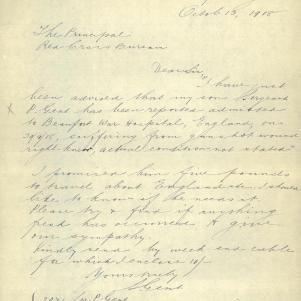 Octob 15, 1918
The Principal
Red Cross Bureau
Dear Sir,
I have just
been advised that my son Sergeant
P. Gent has been reported admitted
to Beaufort War Hospital, England, on
suffering from gunshot wound
right knee, actual condition not stated.
I promised him five pounds
to travel about England & I should
like to know if he needs it
Please try & find if anything
has occurred & give
our sympathy
Kindly send by week end cable
for which I enclose 10/-
Yours truly
Gent